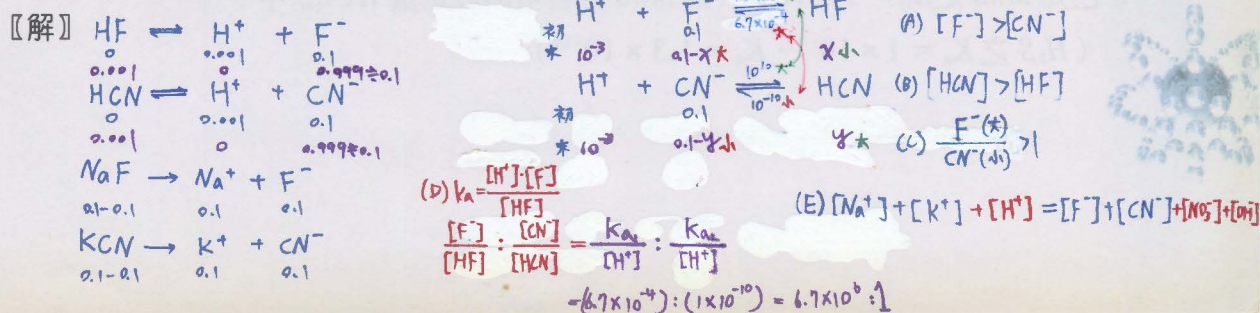 〖解〗 HF ⇌ H⁺ + F⁻
0 0.001 0.1
0.001 0 0.999≒0.1
HCN ⇌ H⁺ + CN⁻
0 0.001 0.1
0.001 0 0.999≒0.1
NaF → Na⁺ + F⁻
0.1-0.1 0.1 0.1
KCN → K⁺ + CN⁻
0.1-0.1 0.1 0.1
H⁺ + F⁻ ⇌ HF
6.7×10⁻⁴ 大
初 0.1
末 10⁻³ 0.1-x 大 x 小
H⁺ + CN⁻ ⇌ HCN
10¹⁰ 大
10⁻¹⁰ 小
初 0.1
末 10⁻³ 0.1-y 小 y 大
(A) [F⁻]>[CN⁻]
(B) [HCN]>[HF]
(C) F⁻(大)/CN⁻(小) >1
(D) ka=[H⁺]·[F⁻]/[HF]
[F⁻]/[HF] : [CN⁻]/[HCN] = ka₁/[H⁺] : ka₂/[H⁺]
=(6.7×10⁻⁴):(1×10⁻¹⁰) = 6.7×10⁶:1
(E) [Na⁺]+[K⁺]+[H⁺]=[F⁻]+[CN⁻]+[NO₃⁻]+[OH⁻]